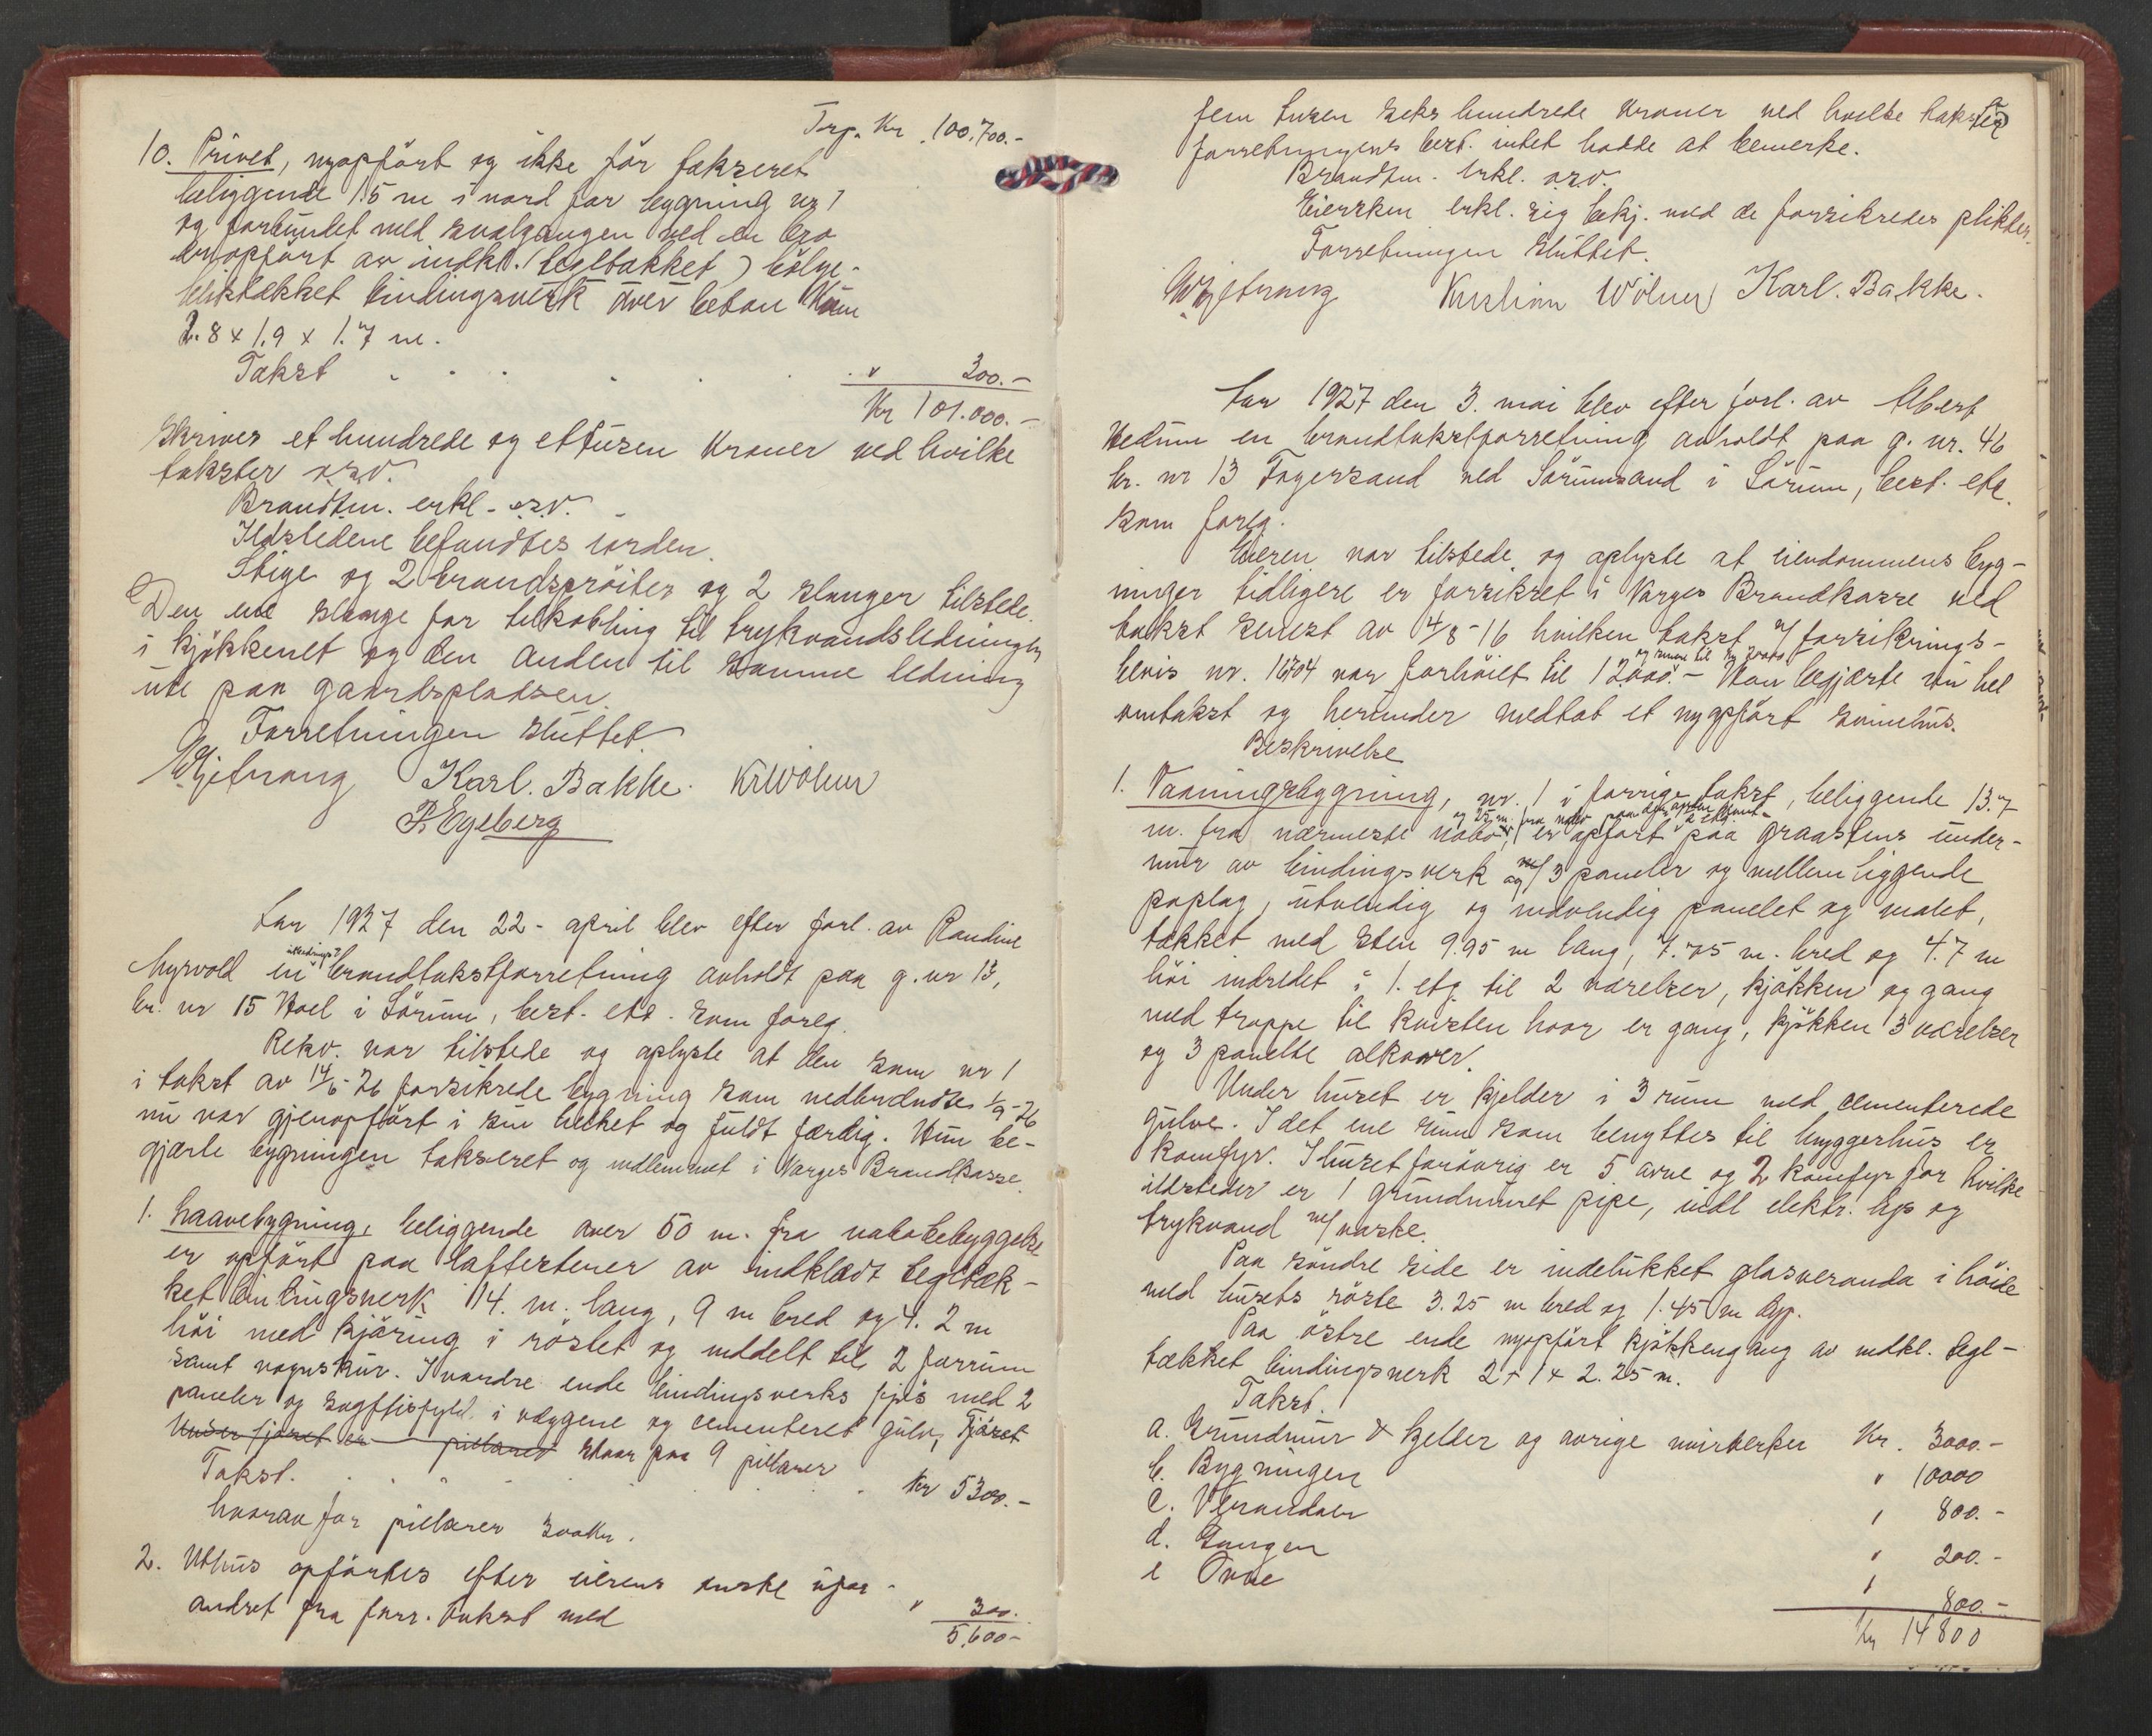 Trsp. Kr. 100.700.-
10. Privet, nyopført og ikke før takseret
beliggende 15 m i nord for bygning nr 1
og forbundet med svalgangen ved en bro
er opført av indkl. (tegltækket) bølge-
bliktækket bindingsverk over beton
2.8 x 1.9 x 1.7 m.
Takst . . . . . . " 300.-
Kr 101.000.-
Skriver et hundrede og et tusen kroner ved hvilke
takster o.s.v.
Brandtm. erkl. o.s.v.
Ildstedene befandtes iorden.
Stige og 2 brandsprøiter og 2 slanger tilstede.
Den ene slange for tilkobling til trykvandsledningen
i kjøkkenet og den anden til samme ledning
ute paa gaardspladsen.
Forretningen sluttet.
Gjetnang Karl. Bakke. Kr Wølner
P. Egeberg
Aar 1927 den 22- april blev efter forl. av Randine
Myrvold en utvidings brandtakstforretning avholdt paa g. nr 13,
br. nr 15 Hoel i Sørum, best. etc. som foreg.
Rekv. var tilstede og oplyste at den som nr 1
i takst av 14/6-26 forsikrede bygning som nedbrændte 1/9-26
nu var gjenopført i sin helhet og fuldt færdig. Hun be-
gjærte bygningen takseret og indlemmet i Norges Brandkasse.
1. Laavebygning, beliggende over 50 m. fra nabobebyggelse
er opført paa løftestener av indklædt tegltæk-
ket bindingsverk 14. m. lang, 9 m bred og 4.2 m
høi med kjøring i røstet og inddelt til 2 forrum
samt vognskur. I nordre ende bindingsverks fjøs med 2
paneler og sagflisfyld i væggene og cementeret gulv, Fjøset
Under fjøset er pillarer staar paa 9 pillarer
Takst. . . . . . . Kr 5300.-
hvorav for pillarer 300 Kr.
2. Uthus opførtes efter eierens ønske ufor-
andret fra forr. takst med " 300.
5.600-
fem tusen seks hundrede kroner ved hvilke takster
forretningens best. intet hadde at bemerke.
Brandtm. erkl. o.s.v.
Eiersken erkl. sig bekj. med de forsikredes plikter.
Forretningen sluttet.
Gjetnang Kristian Wølner Karl. Bakke.
Aar 1927 den 3. mai blev efter forl. av Albert
Hedum en brandtakstforretning avholdt paa g. nr. 46
br. nr 13 Fagersand ved Sørumsand i Sørum, best. etc.
som foreg.
Eieren var tilstede og oplyste at eiendommens byg-
ninger tidligere er forsikret i Norges Brandkasse ved
takst senest av 4/8-16 hvilken takst m/ forsikrings-
bevis nr. 16704 var forhøiet til 12000.- og senere til kr 20000 Han begjærte nu hel
omtakst og herunder medtat et nyopført svinehus.
Beskrivelse
1. Vaaningsbygning, nr. 1 i forrige takst, beliggende 13.7
m. fra nærmeste nabo, og 25 m. fra nabo paa den er opført paa graastens under-
mur av bindingsverk og m/ 3 paneler og mellemliggende
paplag, utvendig og indvendig panelet og malet,
tækket med sten 9.95 m lang, 7.75 m. bred og 4.7 m
høi indredet i 1. etg. til 2 værelser, kjøkken og gang
med trappe til kvisten hvor er gang, kjøkken 3 værelser
og 3 panelte alkover.
Under huset er kjelder i 3 rum med cementerede
gulve. I det ene rum som benyttes til bryggerhus er
komfyr. I huset forøvrig er 5 ovne og 2 komfyr for hvilke
ildsteder er 1 grundmuret pipe, indl. elektr. lys og
trykvand m/ vaske.
Paa søndre side er indelukket glasveranda i høide
med husets røste 3.25 m bred og 1.45 m dyp.
Paa østre ende nyopført kjøkkengang av indkl. tegl-
tækket bindingsverk 2 x 1 x 2.25 m.
Takst.
a. Grundmur & kjelder og øvrige murverker Kr. 3000.-
b. Bygningen " 10000
c. Verandaen " 800.-
d. Gangen " 200.-
e Ovne " 800.-
Kr 14800